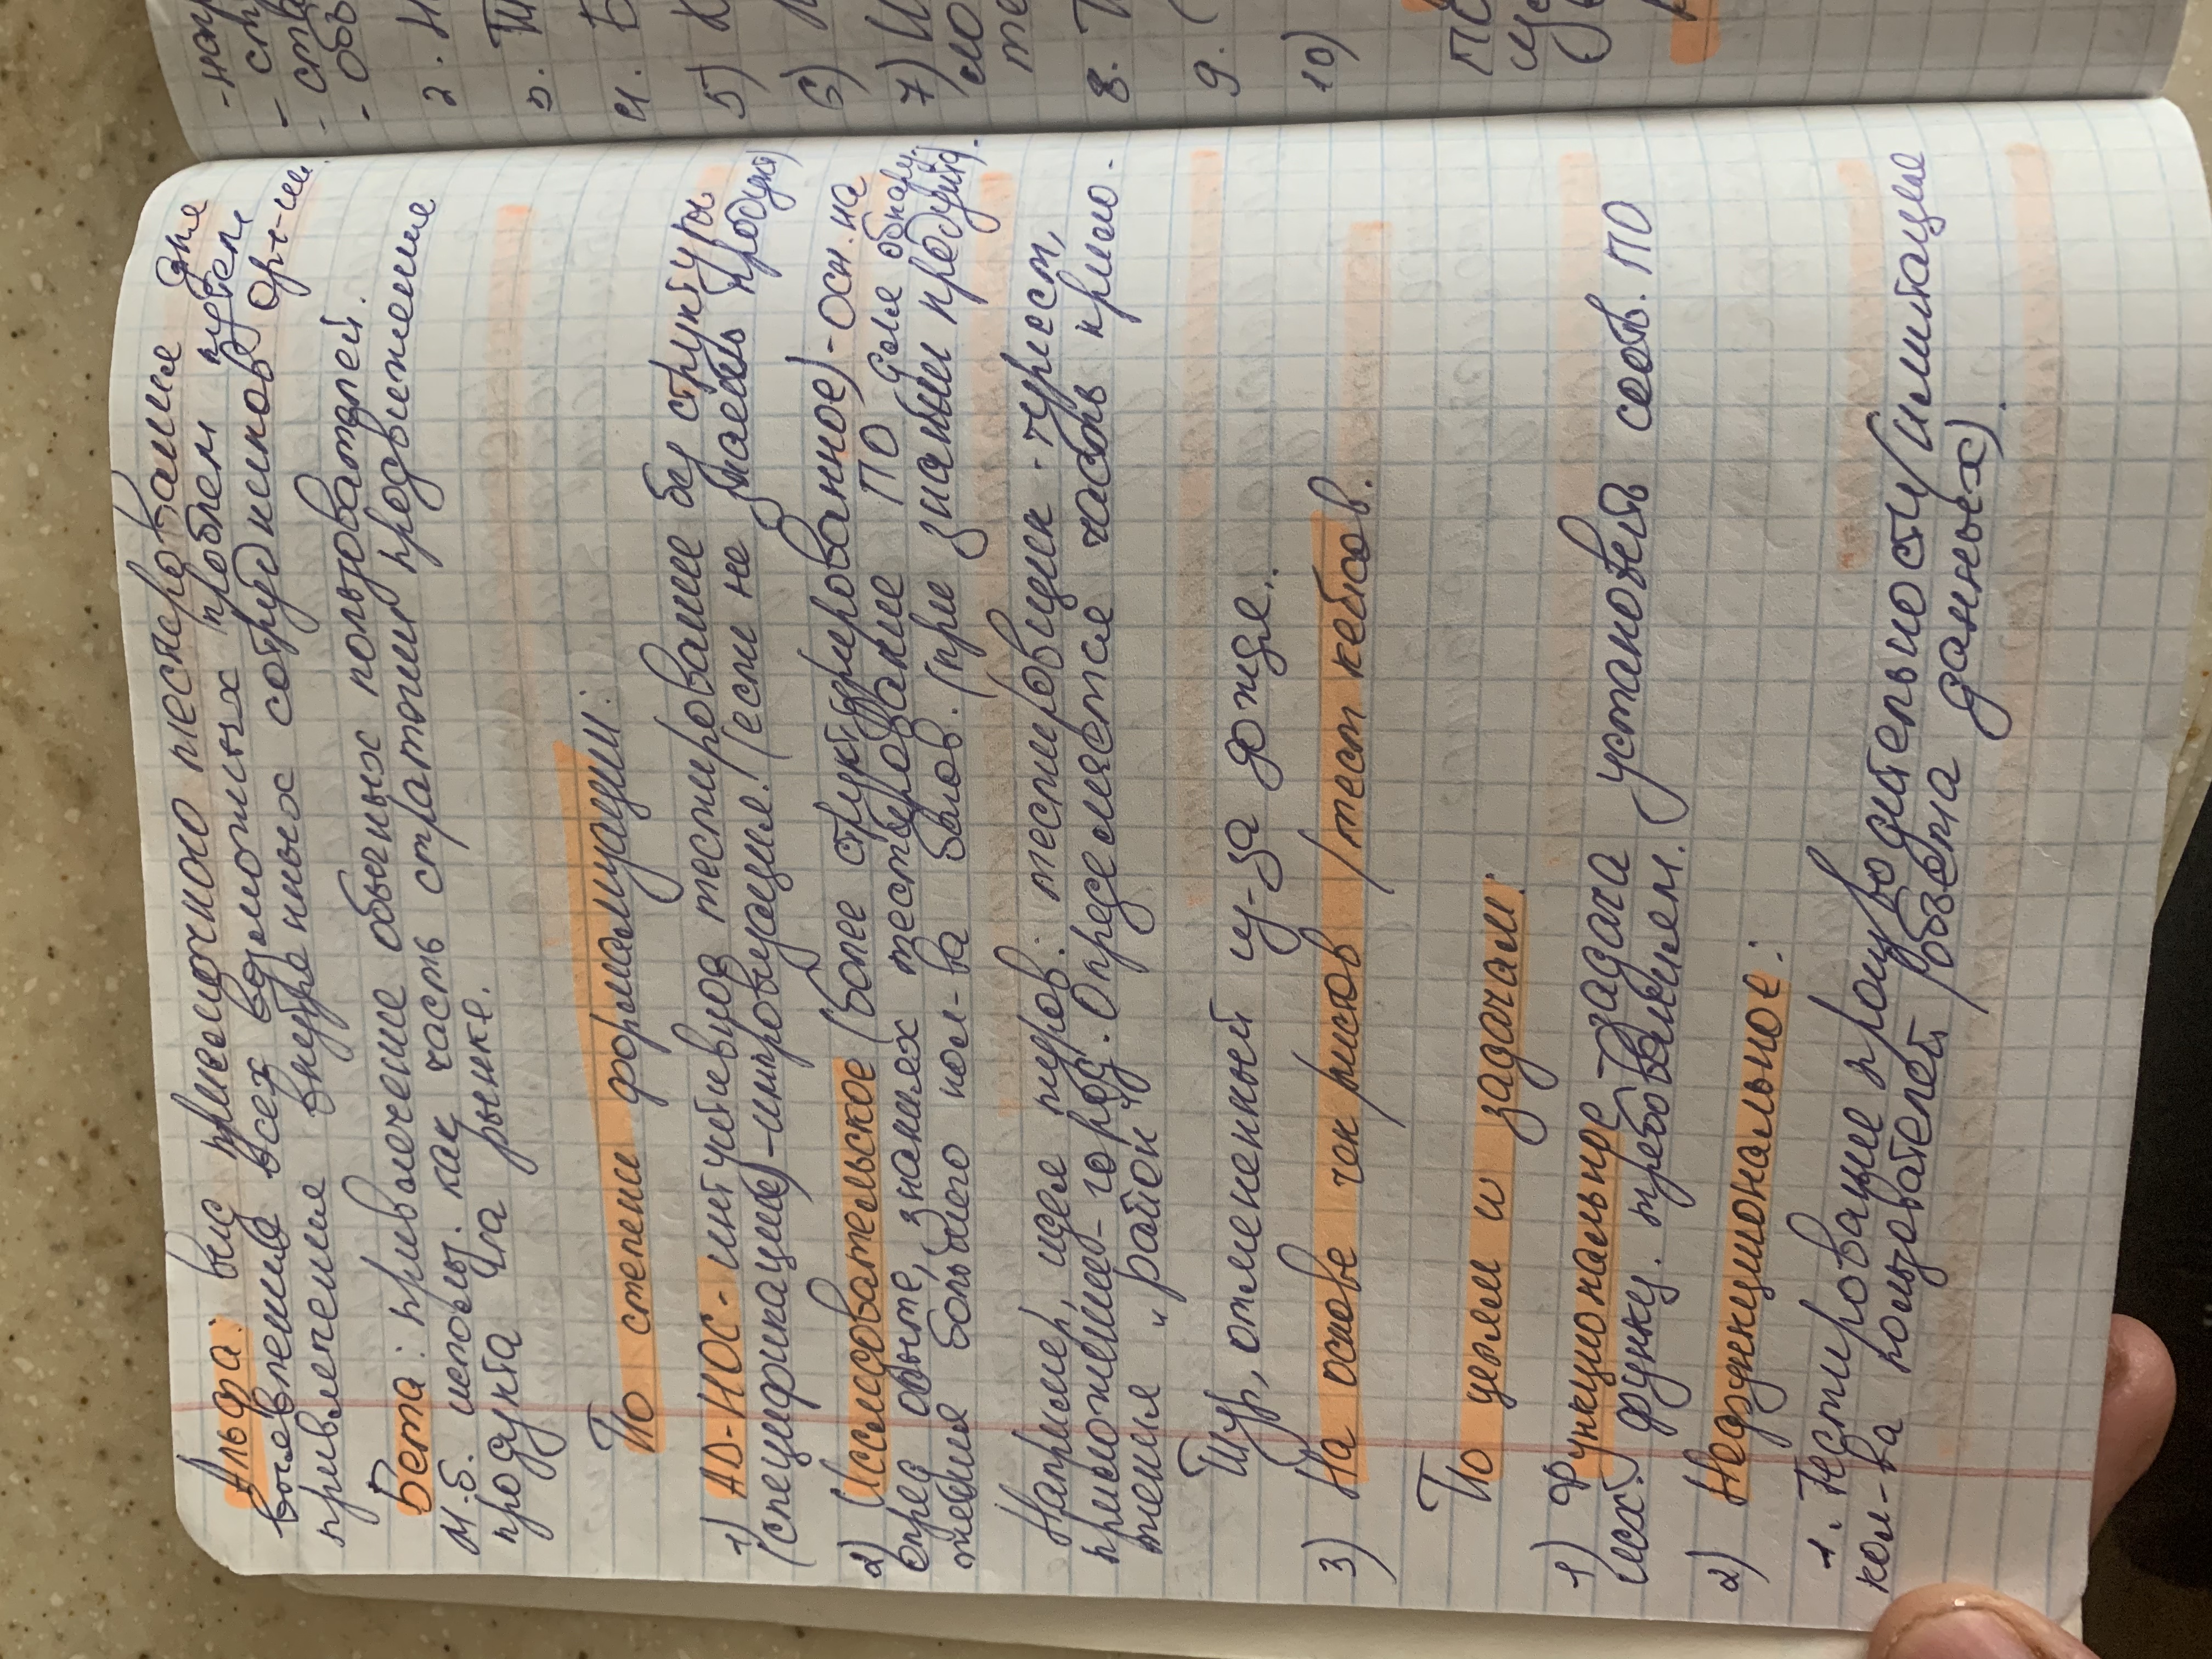 Альфа: вид приемочного тестирования для
выявления всех возможных проблем путем
привлечения внутренних сотрудников орг-ии.
Бета: привлечение обычных пользователей.
М.б. использ. как часть стратегии продвижения
продукта на рынке.
По степени формализации:
1) AD-HOC - интуитивное тестирование без структуры
(спецификации) - импровизация! (если не знаешь продукт)
2) Исследовательское (более структурированное) - осн. на
опред опыте, знаниях тестирование ПО для обнару-
жения большего кол-ва багов. (при знании продукта).
Например, идея туров: тестировщик - турист,
приложение - город. Определяется часть прило-
жения "район"
Тур, отмененный из-за дождя..
3) На основе чек/листов /тест кейсов.
По целям и задачам:
1) Функциональное - задача установить соотв. ПО
исх. функц. требованиям.
2) Нефункциональное:
1. Тестирование производительности (имитация
кол-ва пользователей /объема данных).
-напр
- ст
- ста
- объ
2. Н
3. Т
4. Б
5) К
6)
7) И
ло
те
8. Т
9. (
10)
ПО